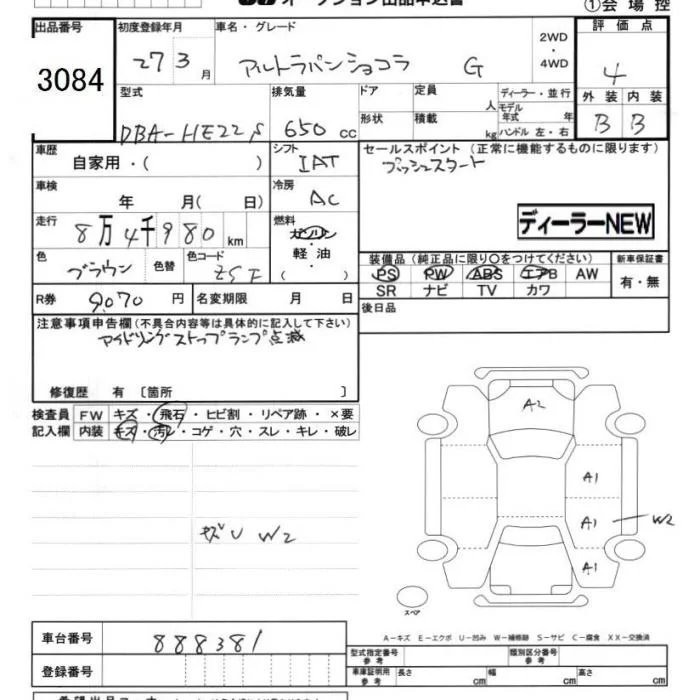 オークション出品申込書
①会場控
出品番号 初度登録年月 車名・グレード 評価点
3084
27 3月 アルトラパンショコラ G 2WD・4WD 4
型式 排気量 ドア 定員 人 ディーラー・並行 外装 内装
DBA-HE22S 650cc 形状 積載 kg モデル年式 年 ハンドル 左・右 B B
車歴 自家用・( ) シフト IAT セールスポイント (正常に機能するものに限ります)
プッシュスタート
車検 年 月( 日) 冷房 AC
ディーラーNEW
走行 8万4千980km 燃料 ガソリン 軽油・( )
色 ブラウン 色替 色コード ZSF
装備品(純正品に限り○をつけてください) 新車保証書
PS PW ABS エアB AW 有・無
SR ナビ TV カワ
R券 9,070円 名変期限 月 日 後日品
注意事項申告欄(不具合内容等は具体的に記入して下さい)
アイドリングストップランプ点滅
修復歴 有 〔箇所 〕
検査員 FW キズ・飛石・ヒビ割・リペア跡・×要
記入欄 内装 キズ・汚レ・コゲ・穴・スレ・キレ・破レ
A2
A1
A1 W2
A1
キズU W2
スペア
A-キズ E-エクボ U-凹み W-補修跡 S-サビ C-腐食 XX-交換済
車台番号 888381
登録番号
型式指定番号 参考 類別区分番号 参考
車庫証明用 参考 長さ cm 幅 cm 高さ cm